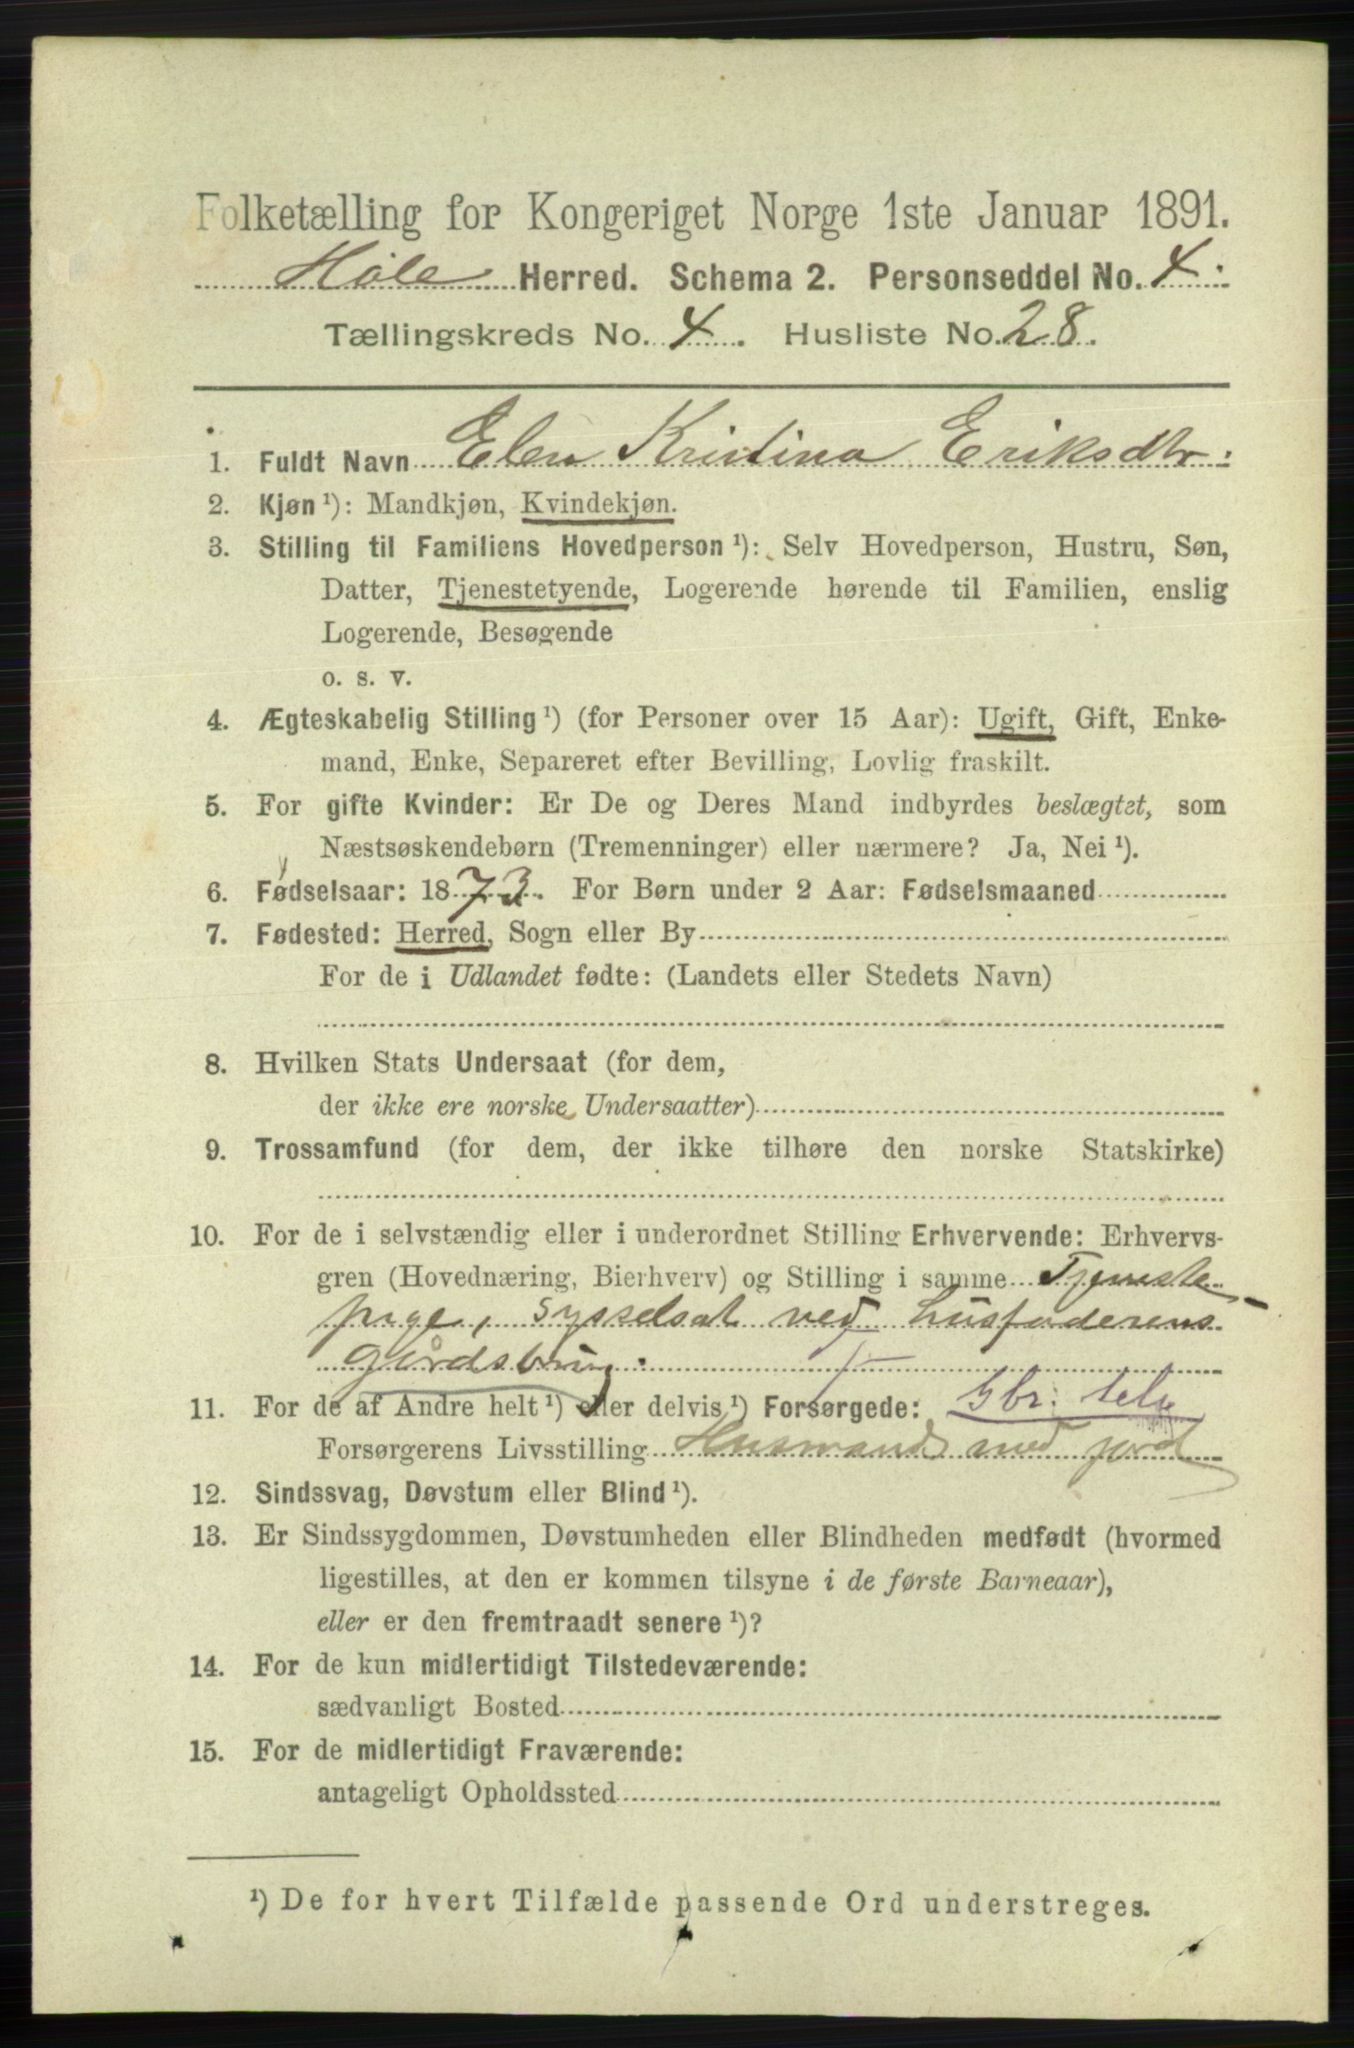 Folketælling for Kongeriget Norge 1ste Januar 1891.
Hole Herred. Schema 2. Personseddel No. 4.
Tællingskreds No. 4. Husliste No. 28.
1. Fuldt Navn Elen Kristina Eriksdtr.
2. Kjøn ¹): Mandkjøn, Kvindekjøn.
3. Stilling til Familiens Hovedperson ¹): Selv Hovedperson, Hustru, Søn,
Datter, Tjenestetyende, Logerende hørende til Familien, enslig
Logerende, Besøgende
o. s. v.
4. Ægteskabelig Stilling ¹) (for Personer over 15 Aar): Ugift, Gift, Enke-
mand, Enke, Separeret efter Bevilling, Lovlig fraskilt.
5. For gifte Kvinder: Er De og Deres Mand indbyrdes beslægtet, som
Næstsøskendebørn (Tremenninger) eller nærmere? Ja, Nei ¹).
6. Fødselsaar: 1873. For Børn under 2 Aar: Fødselsmaaned
7. Fødested: Herred, Sogn eller By
For de i Udlandet fødte: (Landets eller Stedets Navn)
8. Hvilken Stats Undersaat (for dem,
der ikke ere norske Undersaatter)
9. Trossamfund (for dem, der ikke tilhøre den norske Statskirke)
10. For de i selvstændig eller i underordnet Stilling Erhvervende: Erhvervs-
gren (Hovednæring, Bierhverv) og Stilling i samme Tjeneste-
pige, sysselsat ved husfaderens
gårdsbrug.
11. For de af Andre helt ¹) eller delvis ¹) Forsørgede: Gbr. selv
Forsørgerens Livsstilling Husmand med jord
12. Sindssvag, Døvstum eller Blind ¹).
13. Er Sindssygdommen, Døvstumheden eller Blindheden medfødt (hvormed
ligestilles, at den er kommen tilsyne i de første Barneaar),
eller er den fremtraadt senere ¹)?
14. For de kun midlertidigt Tilstedeværende:
sædvanligt Bosted
15. For de midlertidigt Fraværende:
antageligt Opholdssted
¹) De for hvert Tilfælde passende Ord understreges.